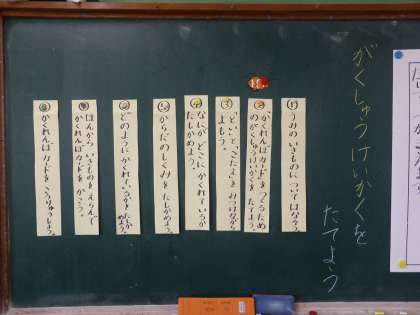 がくしゅうけいかくを
たてよう
うみの いきものに ついて はなそう。
「かくれんぼカード」をつくるため
のがくしゅうけいかくを たてよう。
「といと、こたえ」をみつけながら
よもう。
なにが、どこに かくれているか
たしかめよう。
からだのしくみを たしかめよう。
どのように かくれているかを たしか
めよう。
ほんから いきものを えらんで
かくれんぼカードを かこう。
かくれんぼカードを こうりゅうしよう。